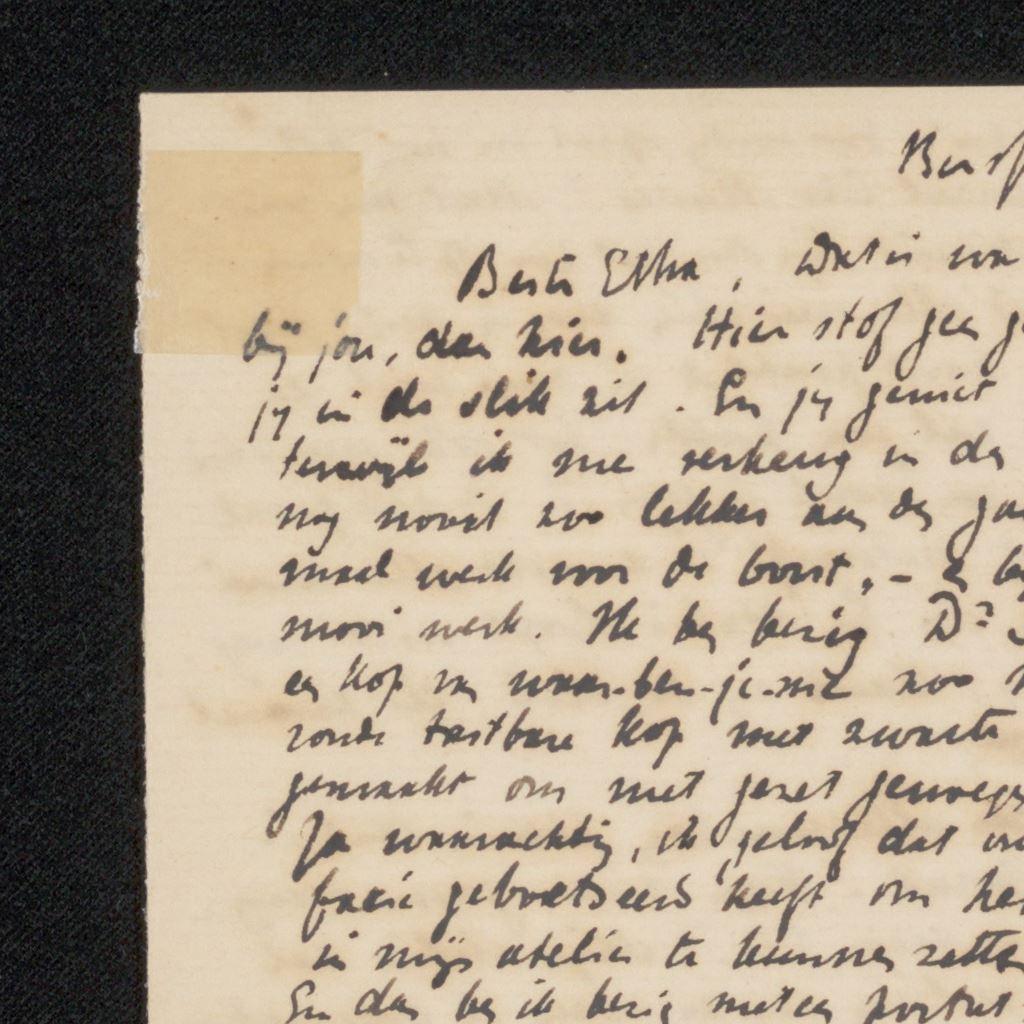 Beste Etha, Dat is
bij jou, dan hier. Hier stof geen
jy in de slik zit. En jy geniet
terwijl ik me verkneug in de
nog nooit zoo lekker aan den
maal werk voor de borst, – en
mooi werk. Ik ben bezig Dr
een kop van waar-ben-je-me zoo
ronde tastbare kop met zwarte
gemaakt om met
Ja waarachtig, ik geloof dat
fraeie geboetseerd heeft om
in mijn atelier te kunnen zetten
En dan ben ik bezig met een portret